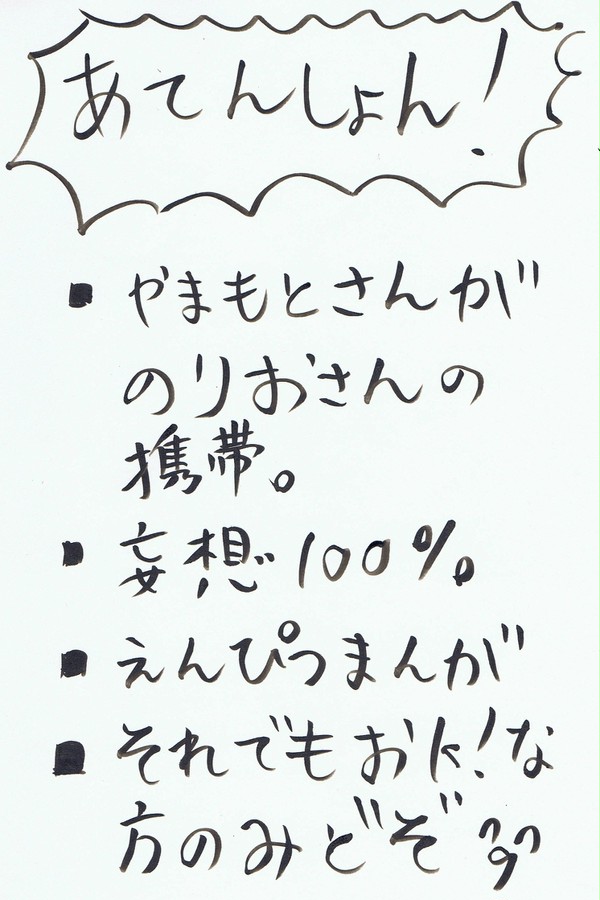 あてんしょん!
▪ やまもとさんが
のりおさんの
携帯。
▪ 妄想100%
▪ えんぴつまんが
▪ それでもおk!な
方のみどぞ